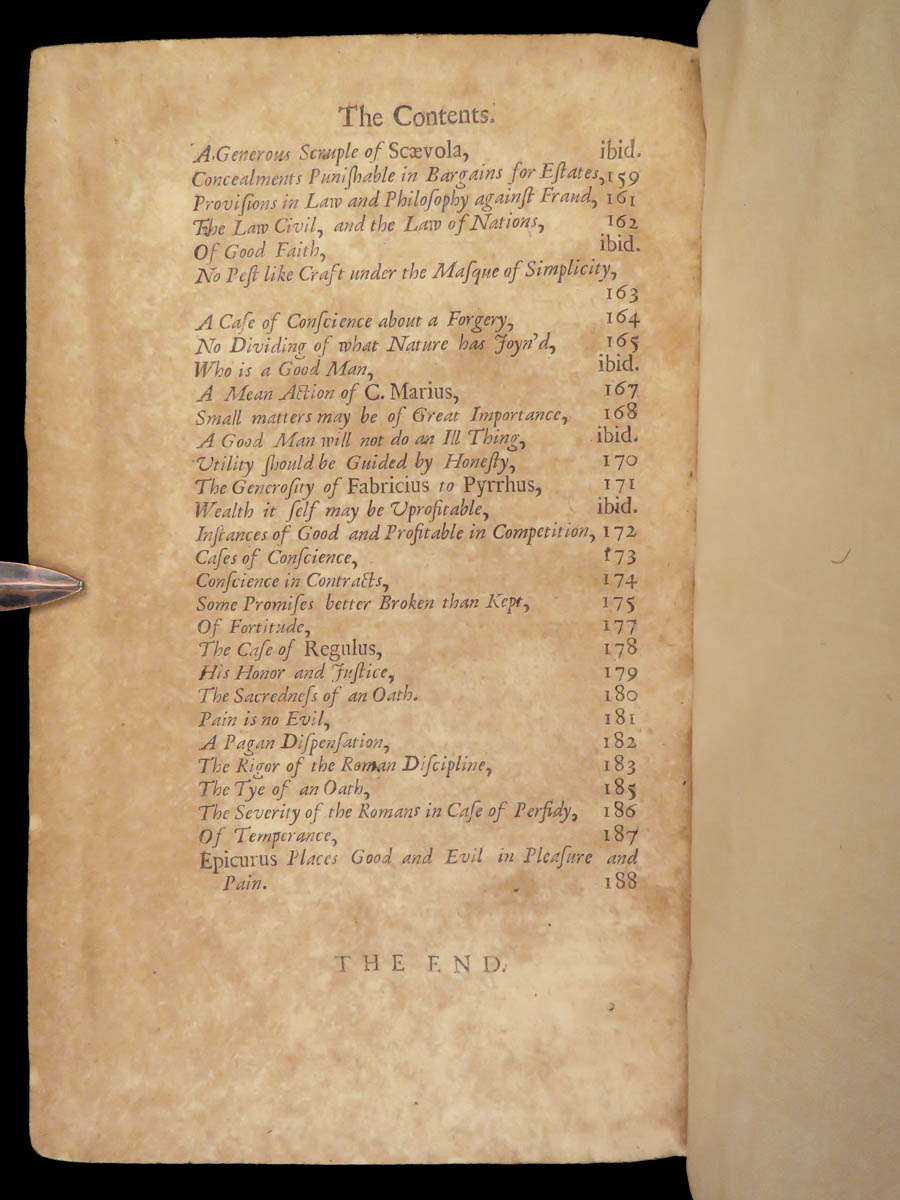 The Contents.
A Generous Scruple of Scævola, ibid.
Concealments Puniſhable in Bargains for Eſtates, 159
Proviſions in Law and Philoſophy againſt Fraud, 161
The Law Civil, and the Law of Nations, 162
Of Good Faith, ibid.
No Peſt like Craft under the Maſque of Simplicity,
163
A Caſe of Conſcience about a Forgery, 164
No Dividing of what Nature has Joyn'd, 165
Who is a Good Man, ibid.
A Mean Action of C. Marius, 167
Small matters may be of Great Importance, 168
A Good Man will not do an Ill Thing, ibid.
Utility ſhould be Guided by Honeſty, 170
The Generoſity of Fabricius to Pyrrhus, 171
Wealth it ſelf may be Uprofitable, ibid.
Inſtances of Good and Profitable in Competition, 172
Caſes of Conſcience, 173
Conſcience in Contracts, 174
Some Promiſes better Broken than Kept, 175
Of Fortitude, 177
The Caſe of Regulus, 178
His Honor and Juſtice, 179
The Sacredneſs of an Oath. 180
Pain is no Evil, 181
A Pagan Diſpenſation, 182
The Rigor of the Roman Diſcipline, 183
The Tye of an Oath, 185
The Severity of the Romans in Caſe of Perfidy, 186
Of Temperance, 187
Epicurus Places Good and Evil in Pleaſure and
Pain. 188
THE END.